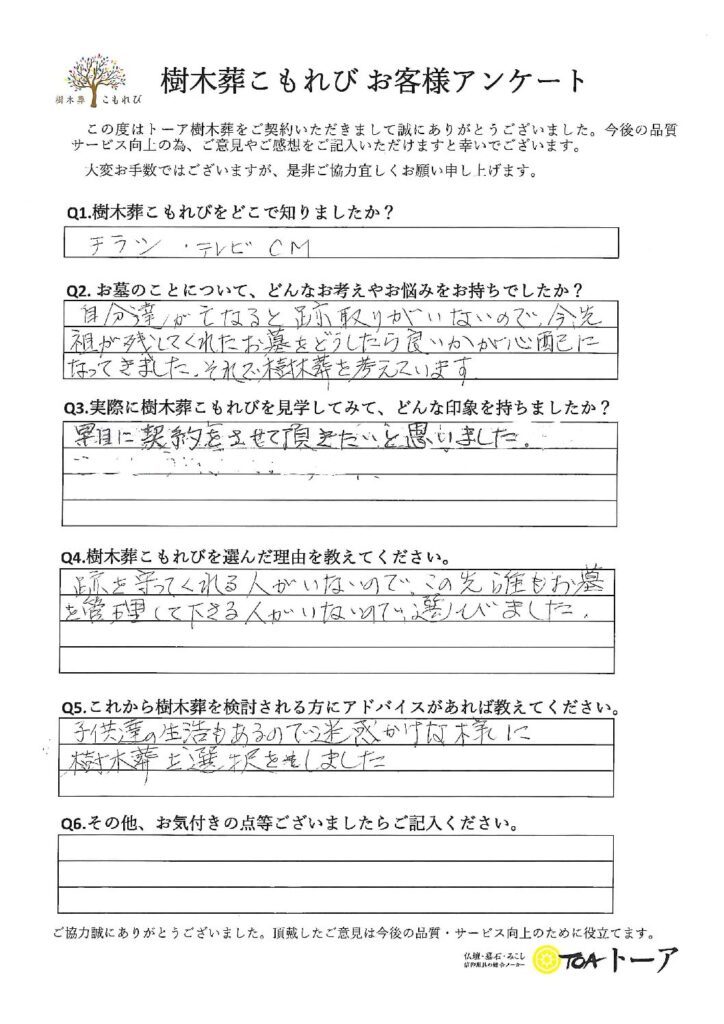 樹木葬こもれび
樹木葬こもれび お客様アンケート
この度はトーア樹木葬をご契約いただきまして誠にありがとうございました。今後の品質
サービス向上の為、ご意見やご感想をご記入いただけますと幸いでございます。
大変お手数ではございますが、是非ご協力宜しくお願い申し上げます。
Q1.樹木葬こもれびをどこで知りましたか？
チラシ ・テレビCM
Q2. お墓のことについて、どんなお考えやお悩みをお持ちでしたか？
自分達が亡なると跡取りがいないので、今、先
祖が残してくれたお墓をどうしたら良いかが心配に
なってきました。それで樹木葬を考えています
Q3.実際に樹木葬こもれびを見学してみて、どんな印象を持ちましたか？
契約をさせて頂きたいと思いました。
Q4.樹木葬こもれびを選んだ理由を教えてください。
跡を守ってくれる人がいないので、この先誰もお墓
を管理して下さる人がいないので、選びました。
Q5.これから樹木葬を検討される方にアドバイスがあれば教えてください。
子供達の生活もあるので迷惑かけな様に
樹木葬を選択をしました
Q6.その他、お気付きの点等ございましたらご記入ください。
ご協力誠にありがとうございました。頂戴したご意見は今後の品質・サービス向上のために役立てます。
仏壇・墓石・みこし
信仰用具の総合メーカー
TOAトーア